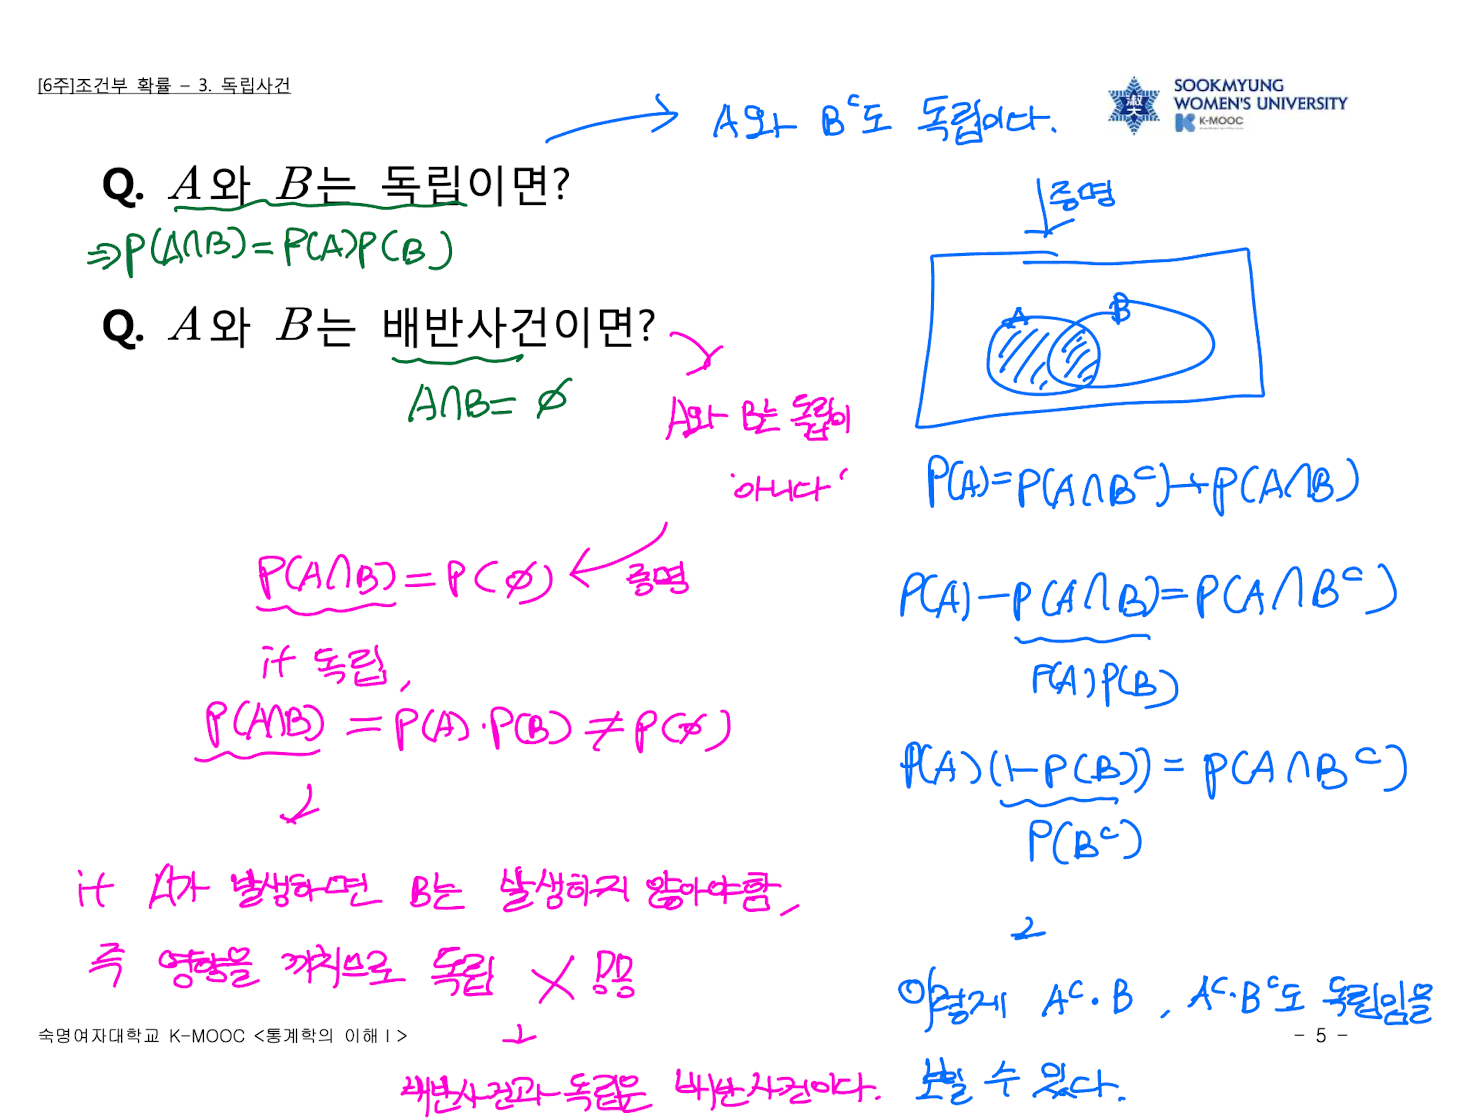 [6주]조건부 확률 – 3. 독립사건
SOOKMYUNG
WOMEN'S UNIVERSITY
K-MOOC
A와 Bᶜ도 독립이다.
Q. A와 B는 독립이면?
⇒P(A∩B)=P(A)P(B)
증명
Q. A와 B는 배반사건이면?
A∩B=∅
A와 B는 독립이
'아니다'
A B
P(A)=P(A∩Bᶜ)+P(A∩B)
P(A)-P(A∩B)=P(A∩Bᶜ)
P(A)P(B)
P(A)(1-P(B))=P(A∩Bᶜ)
P(Bᶜ)
이렇게 Aᶜ·B, Aᶜ·Bᶜ도 독립임을
보일 수 있다.
P(A∩B)=P(∅)
증명
if 독립,
P(A∩B)=P(A)·P(B)≠P(∅)
if A가 발생하면 B는 발생하지 않아야함,
즉 영향을 끼치므로 독립 X
배반사건과 독립은 배반사건이다.
숙명여자대학교 K-MOOC <통계학의 이해 I>
- 5 -